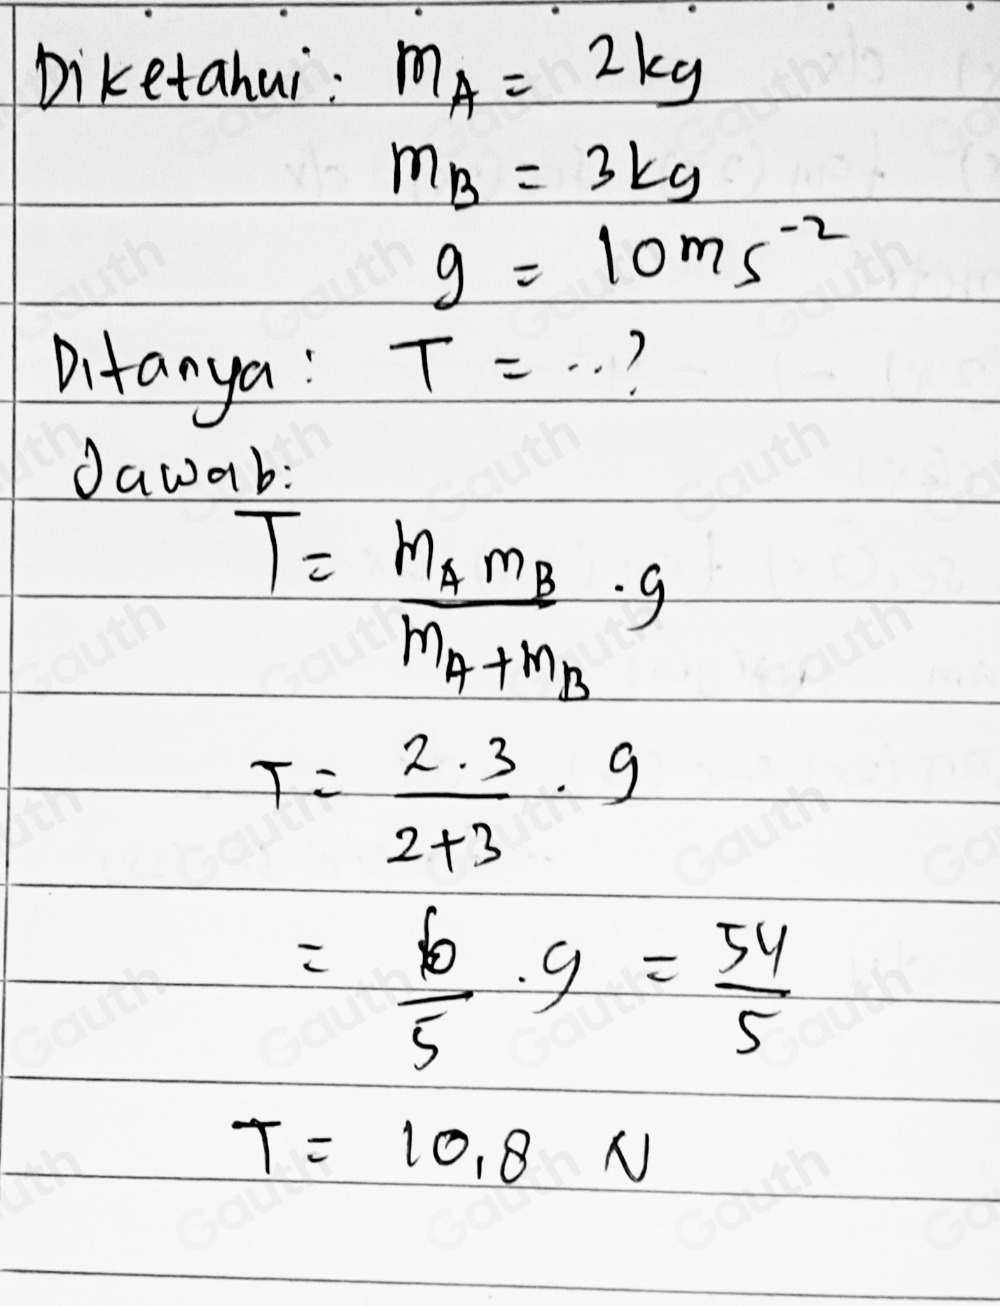 Diketahui: mA = 2kg
mB = 3kg
g = 10ms⁻²
Ditanya: T = ...?
Jawab:
T = mA mB / mA + mB . g
T = 2 . 3 / 2 + 3 . g
= 6/5 . g = 54/5
T = 10,8 N